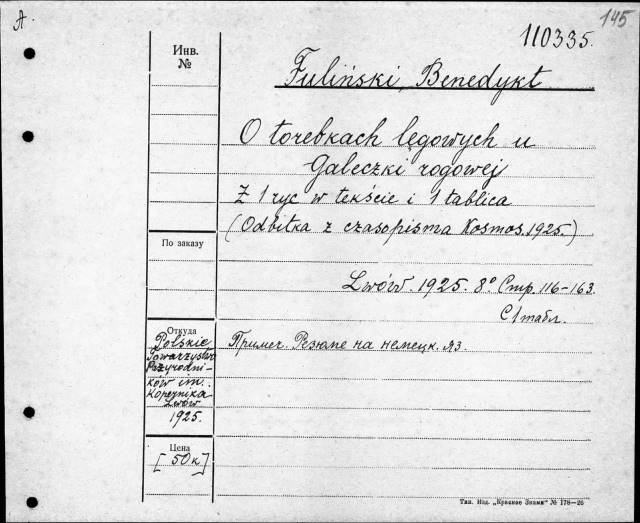 A.
145
110335.
Инв.
№
Fuliński, Benedykt
O torebkach lęgowych u
Gałeczki rogowej
Z 1 ryc w tekście i 1 tablica
(Odbitka z czasopisma Kosmos. 1925.)
По заказу
Lwów. 1925. 8° Стр. 116-163.
С 1 табл.
Откуда
Polskie
Towarzystwo
Przyrodni-
ków im.
Kopernika
Lwów
1925.
Примеч. Резюме на немецк. яз.
Цена
[50 к.]
Тип. Изд. „Красное Знамя" № 178—26